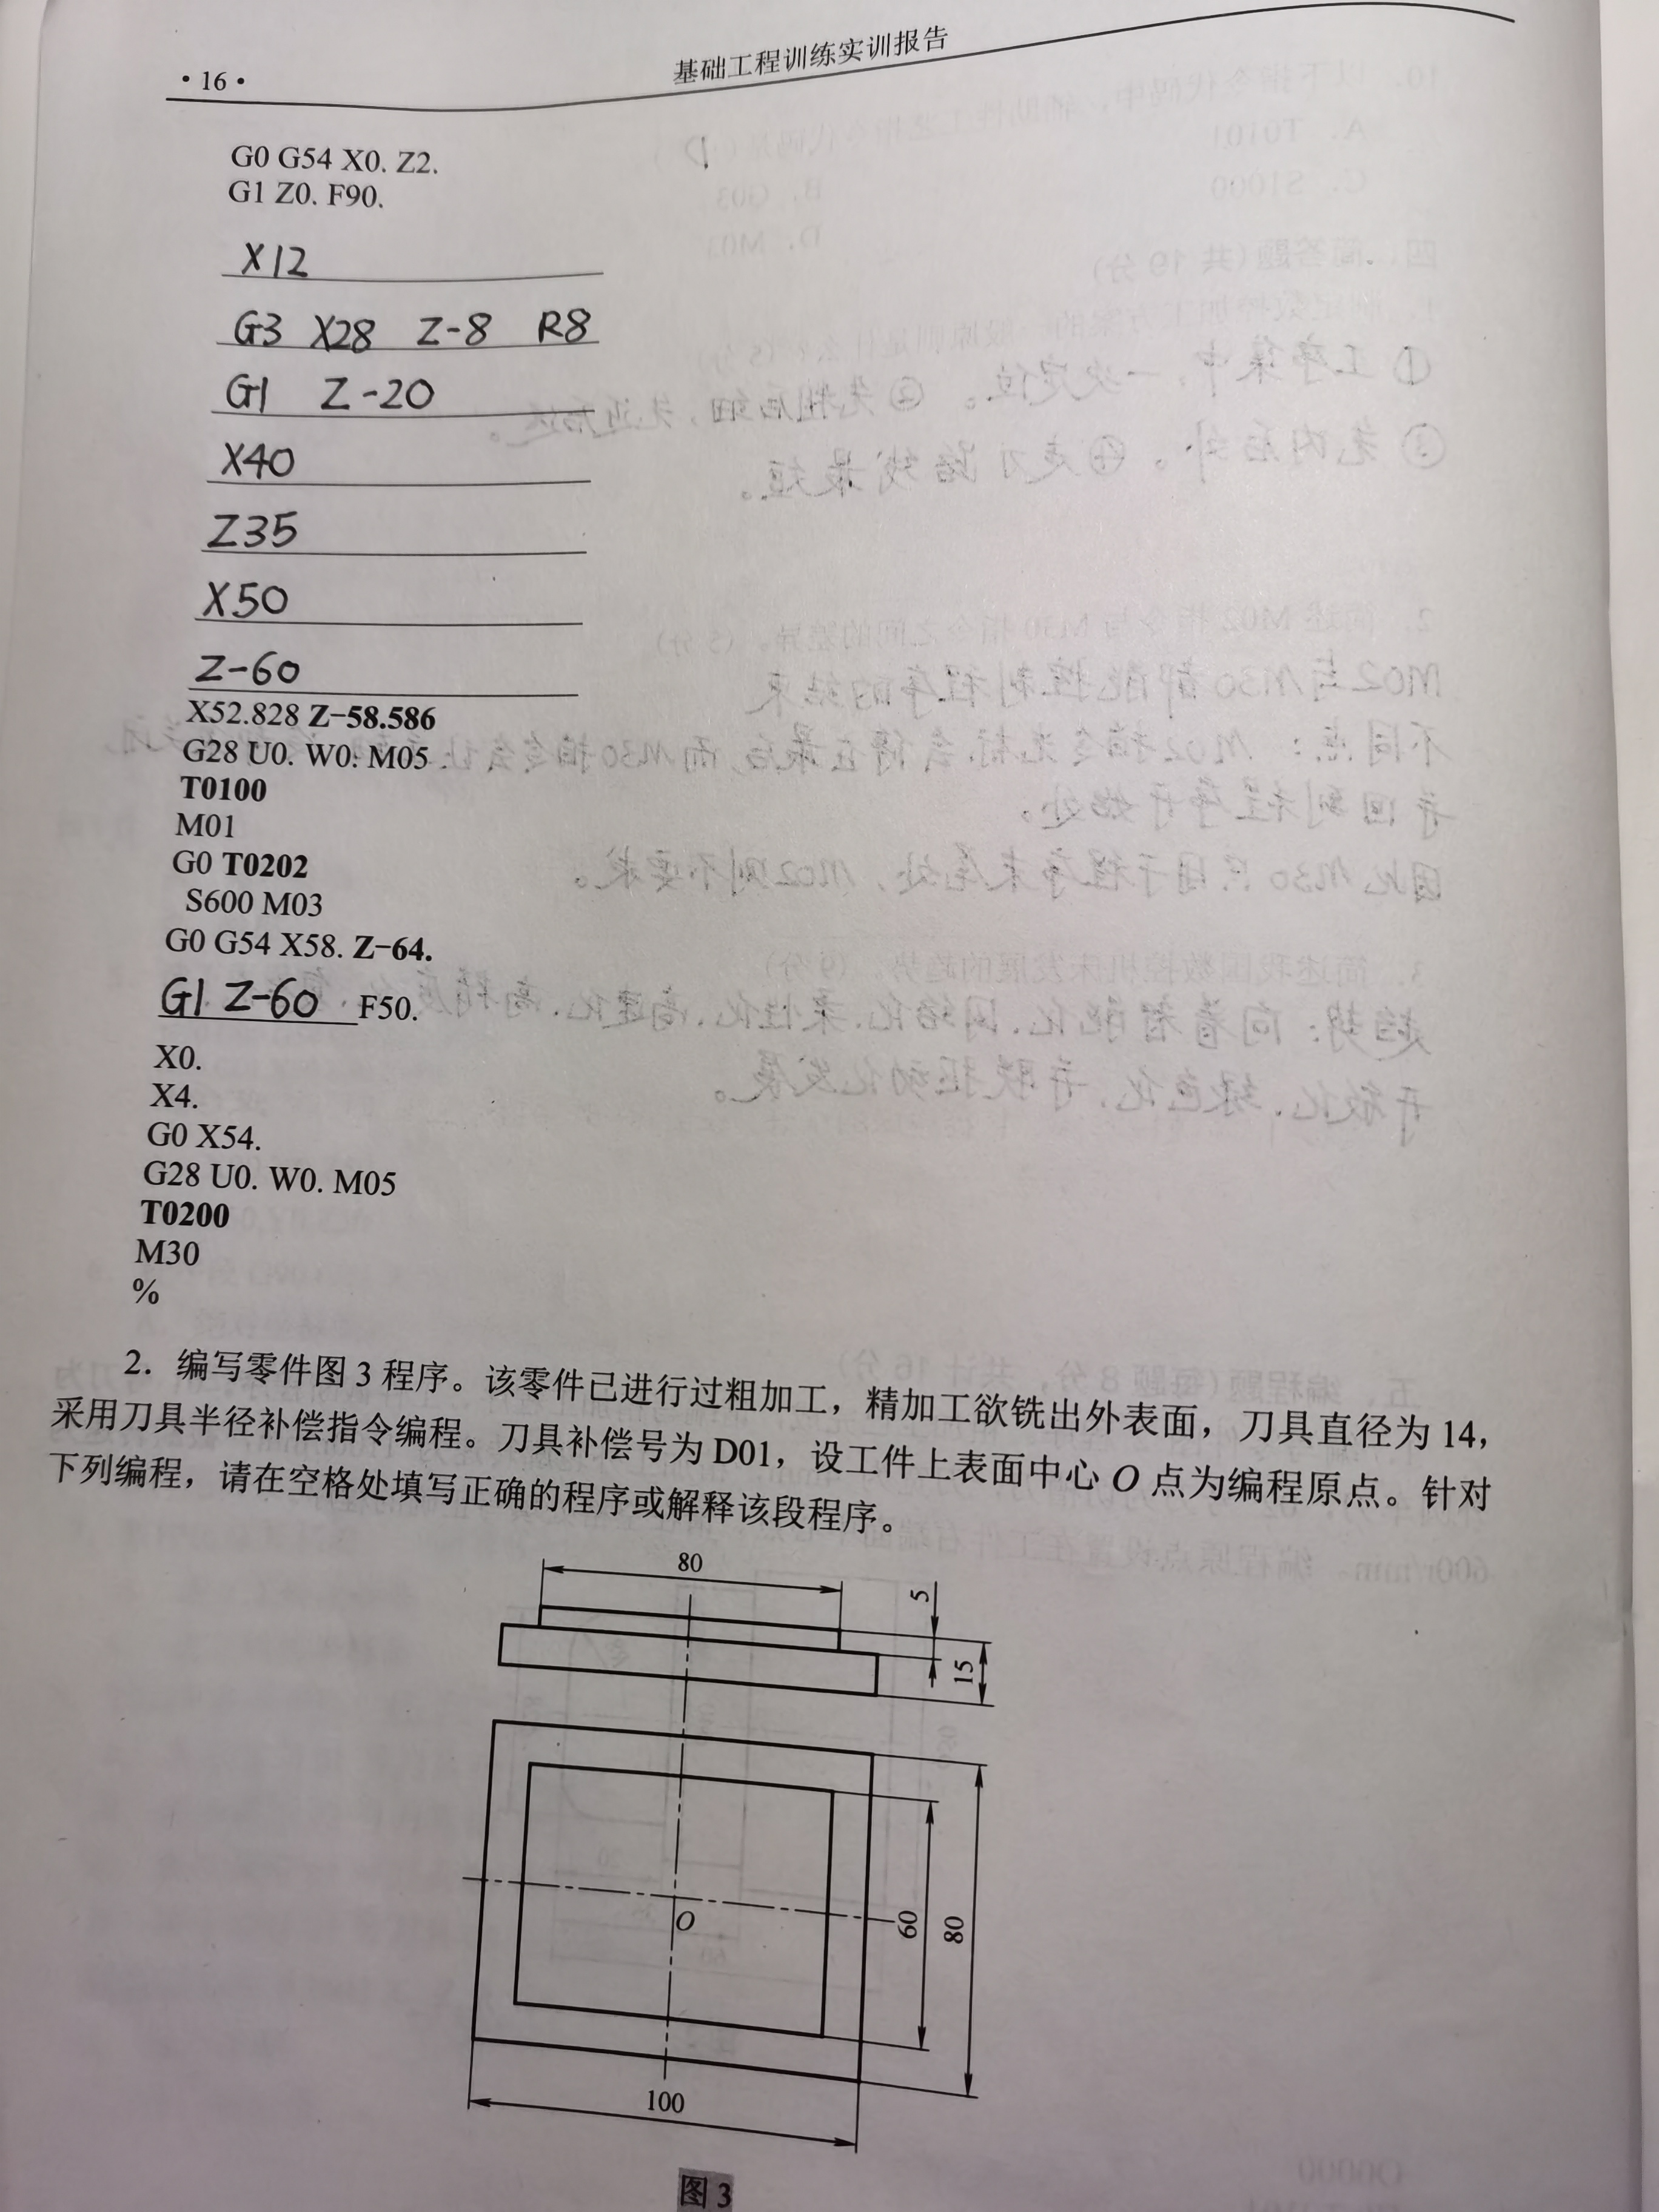 ·16·
基础工程训练实训报告
G0 G54 X0. Z2.
G1 Z0. F90.
X12
G3 X28 Z-8 R8
G1 Z-20
X40
Z35
X50
Z-60
X52.828 Z-58.586
G28 U0. W0. M05
T0100
M01
G0 T0202
S600 M03
G0 G54 X58. Z-64.
G1 Z-60 F50.
X0.
X4.
G0 X54.
G28 U0. W0. M05
T0200
M30
%
2. 编写零件图 3 程序。该零件已进行过粗加工，精加工欲铣出外表面，刀具直径为 14，
采用刀具半径补偿指令编程。刀具补偿号为 D01，设工件上表面中心 O 点为编程原点。针对
下列编程，请在空格处填写正确的程序或解释该段程序。
80
5
15
O
60
80
100
图 3